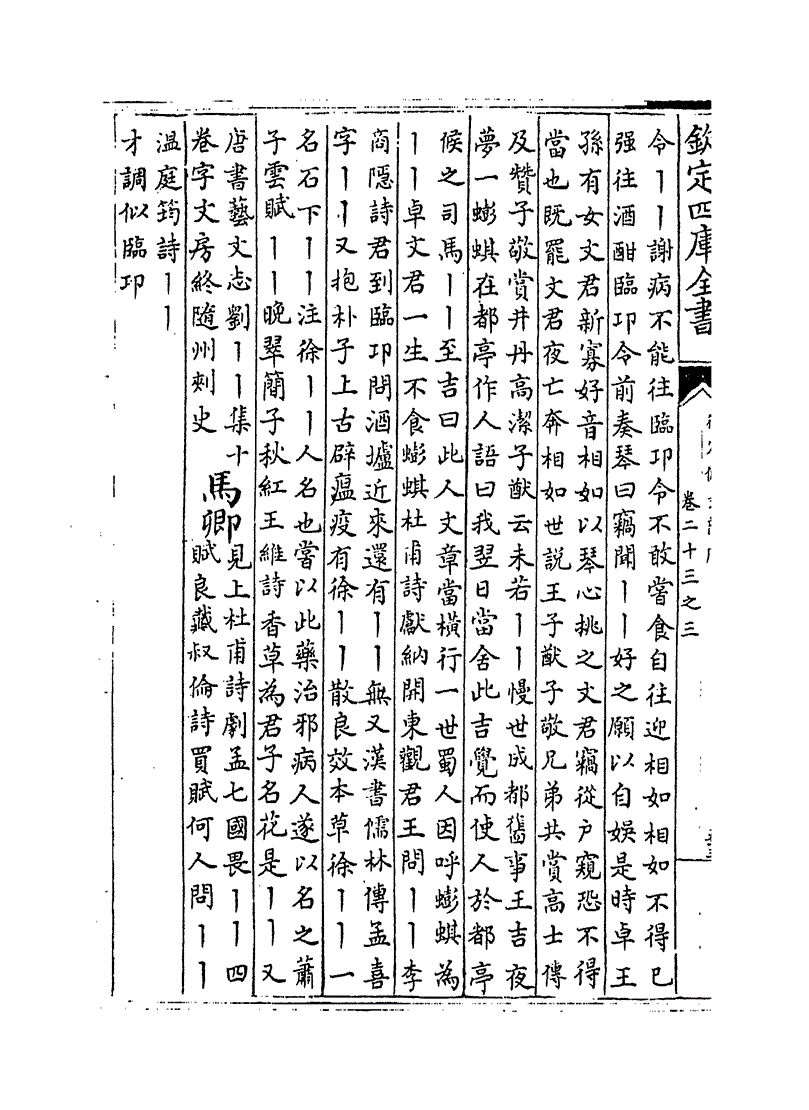 欽定四庫全書
卷二十三之三
令丨丨謝病不能往臨邛令不敢嘗食自往迎相如相如不得已
强往酒酣臨邛令前奏琴曰竊聞丨丨好之願以自娱是時卓王
孫有女文君新寡好音相如以琴心挑之文君竊從户窺恐不得
當也既罷文君夜亡奔相如世説王子猷子敬兄弟共賞高士傳
及贊子敬賞井丹高潔子猷云未若丨丨慢世成都舊事王吉夜
夢一蟛蜞在都亭作人語曰我翌日當舍此吉覺而使人於都亭
候之司馬丨丨至吉曰此人文章當橫行一世蜀人因呼蟛蜞為
丨丨卓文君一生不食蟛蜞杜甫詩獻納開東觀君王問丨丨李
商隱詩君到臨邛問酒壚近來還有丨丨無又漢書儒林傳孟喜
字丨丨又抱朴子上古辟瘟疫有徐丨丨散良效本草徐丨丨一
名石下丨丨注徐丨丨人名也嘗以此藥治邪病人遂以名之蕭
子雲賦丨丨晚翠簡子秋紅王維詩香草為君子名花是丨丨又
唐書藝文志劉丨丨集十
卷字文房終隨州刺史
馬卿
見上杜甫詩劇孟七國畏丨丨四
賦良藏叔倫詩買賦何人問丨丨
温庭筠詩丨丨
才調似臨邛